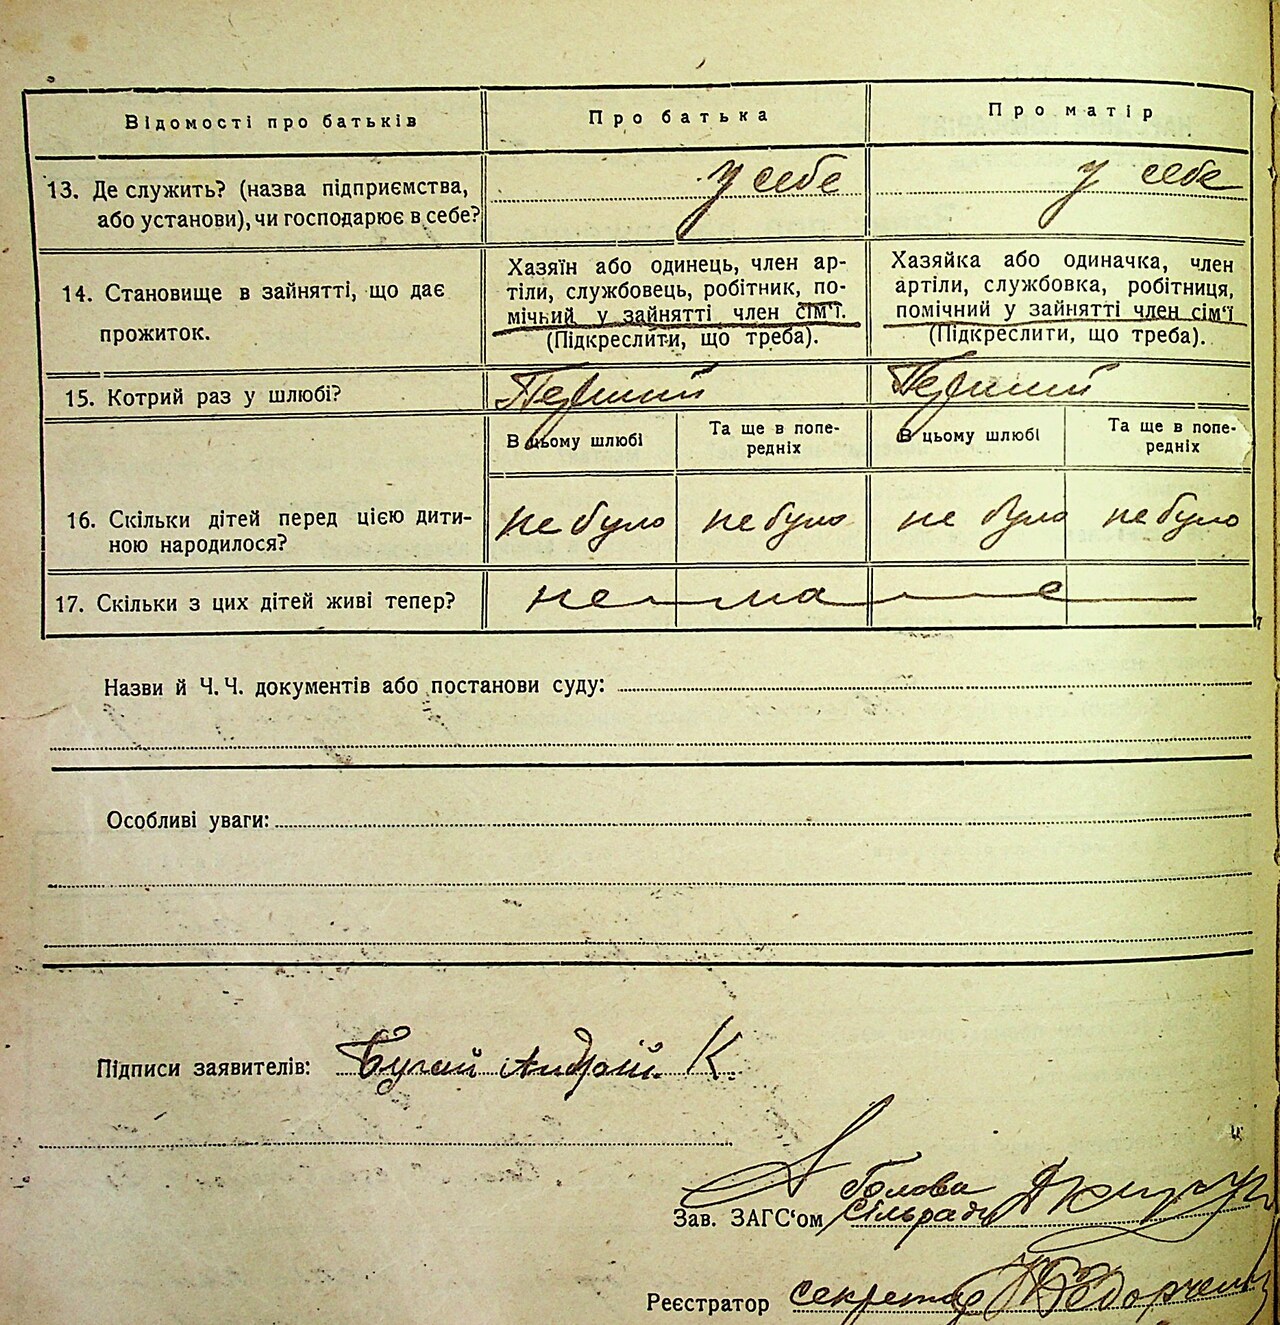 Відомості про батьків Про батька Про матір
13. Де служить? (назва підприємства, або установи), чи господарює в себе? у себе у себе
14. Становище в зайнятті, що дає прожиток.
Хазяїн або одинець, член ар-
тіли, службовець, робітник, по-
мічний у зайнятті член сім'ї.
(Підкреслити, що треба).
Хазяйка або одиначка, член
артіли, службовка, робітниця,
помічний у зайнятті член сім'ї
(Підкреслити, що треба).
15. Котрий раз у шлюбі? Перший Перший
В цьому шлюбі
Та ще в попе-
редніх
В цьому шлюбі
Та ще в попе-
редніх
16. Скільки дітей перед цією дити-
ною народилося? не було не було не було не було
17. Скільки з цих дітей живі тепер? не ма е
Назви й Ч. Ч. документів або постанови суду:
Особливі уваги:
Підписи заявителів: Бугай Андрій К.
Голова
Зав. ЗАГС'ом Сільради
Реєстратор секретар